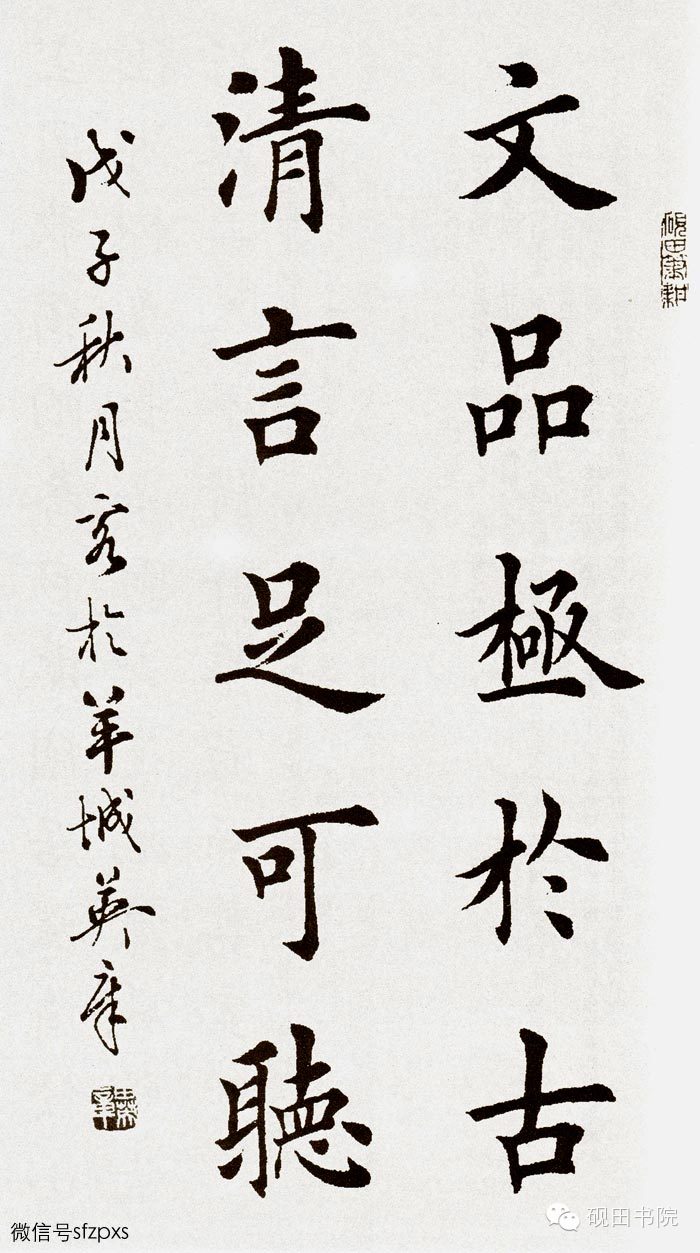 文品極於古
清言足可聽
戊子秋月客於羊城英章
砚田书院
微信号sfzpxs